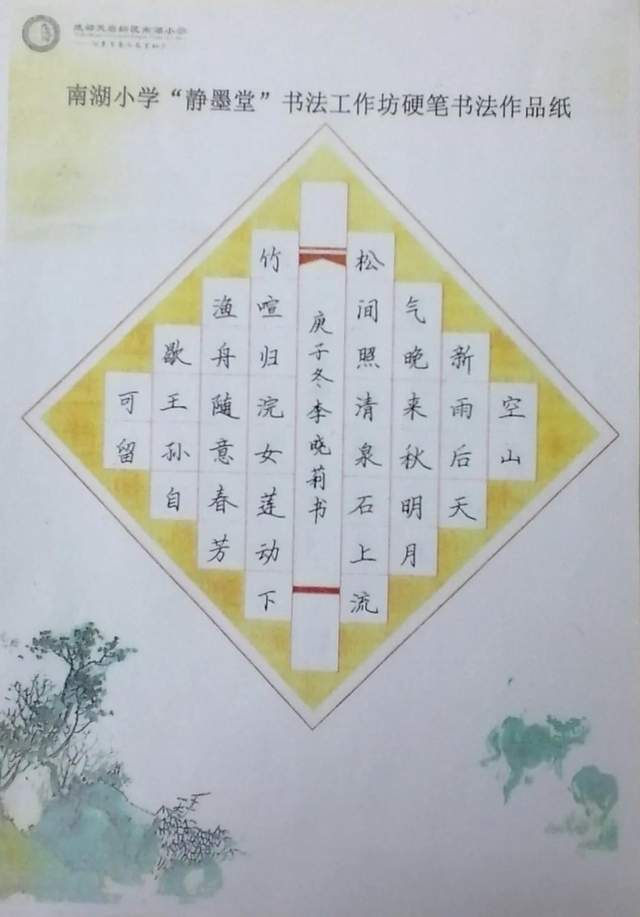 成都天府新区南湖小学
南湖小学“静墨堂”书法工作坊硬笔书法作品纸
空山
新雨后天
气晚来秋明月
松间照清泉石上流
庚子冬李晓莉书
竹喧归浣女莲动下
渔舟随意春芳
歇王孙自
可留